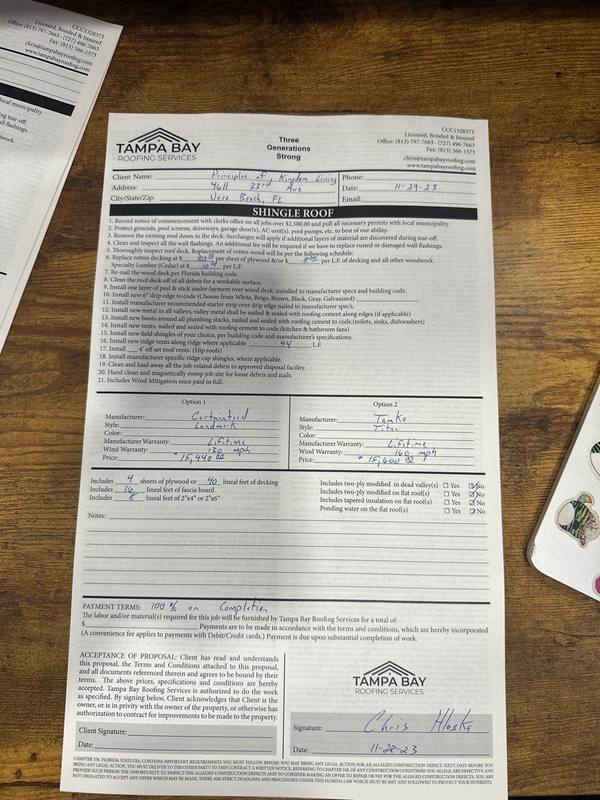 CCC1328373
Licensed, Bonded & Insured
Office: (813) 797-7663 · (727) 496-7663
Fax: (813) 566-1573
chris@tampabayroofing.com
www.tampabayroofing.com
TAMPA BAY
ROOFING SERVICES
Three
Generations
Strong
CCC1328373
Licensed, Bonded & Insured
Office: (813) 797-7663 · (727) 496-7663
Fax: (813) 566-1573
chris@tampabayroofing.com
www.tampabayroofing.com
Client Name: Principles of Kingdom Living Phone:
Address: 4611 33rd Ave Date: 11-29-23
City/State/Zip: Vero Beach, FL Email:
SHINGLE ROOF
1. Record notice of commencement with clerks office on all jobs over $2,500.00 and pull all necessary permits with local municipality.
2. Protect grounds, pool screens, driveways, garage door(s), AC unit(s), pool pumps, etc. to best of our ability.
3. Remove the existing roof down to the deck. Surcharges will apply if additional layers of material are discovered during tear-off.
4. Clean and inspect all the wall flashings. An additional fee will be required if we have to replace rusted or damaged wall flashings.
5. Thoroughly inspect roof deck. Replacement of rotten wood will be per the following schedule:
6. Replace rotten decking at $ 80.00 per sheet of plywood &/or $ per L.F. of decking and all other woodwork.
Specialty Lumber (Cedar) at $ per L.F.
7. Re-nail the wood deck per Florida building code.
8. Clean the roof deck off of all debris for a workable surface.
9. Install one layer of peel & stick underlayment over wood deck, installed to manufacturer specs and building code.
10. Install new 6" drip edge to code (Choose from White, Beige, Brown, Black, Gray, Galvanized)
11. Install manufacturer recommended starter strip over drip edge nailed to manufacturer spec's.
12. Install new metal in all valleys, valley metal shall be nailed & sealed with roofing cement along edges (if applicable)
13. Install new boots around all plumbing stacks, nailed and sealed with roofing cement to code.(toilets, sinks, dishwashers)
14. Install new vents, nailed and sealed with roofing cement to code.(kitchen & bathroom fans)
15. Install new field shingles of your choice, per building code and manufacturer's specifications.
16. Install new ridge vents along ridge where applicable 44 L.F.
17. Install 4' off set roof vents. (Hip roofs)
18. Install manufacturer specific ridge cap shingles, where applicable.
19. Clean and haul all the job-related debris to approved disposal facility.
20. Hand clean and magnetically sweep job site for loose debris and nails.
21. Includes Wind Mitigation once paid in full.
Option 1
Manufacturer: Certainteed
Style: Landmark
Color:
Manufacturer Warranty: Lifetime
Wind Warranty: 130 mph
Price: 15,440.00
Option 2
Manufacturer: Tamko
Style: Titan
Color:
Manufacturer Warranty: Lifetime
Wind Warranty: 160 mph
Price: 15,600.00
Includes 4 sheets of plywood or 40 lineal feet of decking
Includes 16 lineal feet of fascia board
Includes 8 lineal feet of 2"x4" or 2"x6"
Includes two-ply modified in dead valley(s) Yes No
Includes two-ply modified on flat roof(s) Yes No
Includes tapered insulation on flat roof(s) Yes No
Ponding water on the flat roof(s) Yes No
Notes:
PAYMENT TERMS: 100 % on Completion
The labor and/or material(s) required for this job will be furnished by Tampa Bay Roofing Services for a total of:
$ Payments are to be made in accordance with the terms and conditions, which are hereby incorporated
(A convenience fee applies to payments with Debit/Credit cards.) Payment is due upon substantial completion of work.
ACCEPTANCE OF PROPOSAL: Client has read and understands
this proposal, the Terms and Conditions attached to this proposal,
and all documents referenced therein and agrees to be bound by their
terms. The above prices, specifications and conditions are hereby
accepted. Tampa Bay Roofing Services is authorized to do the work
as specified. By signing below, Client acknowledges that Client is the
owner, or is in privity with the owner of the property, or otherwise has
authorization to contract for improvements to be made to the property.
Client Signature:
Date:
TAMPA BAY
ROOFING SERVICES
Signature: Chris
Date: 11-28-23